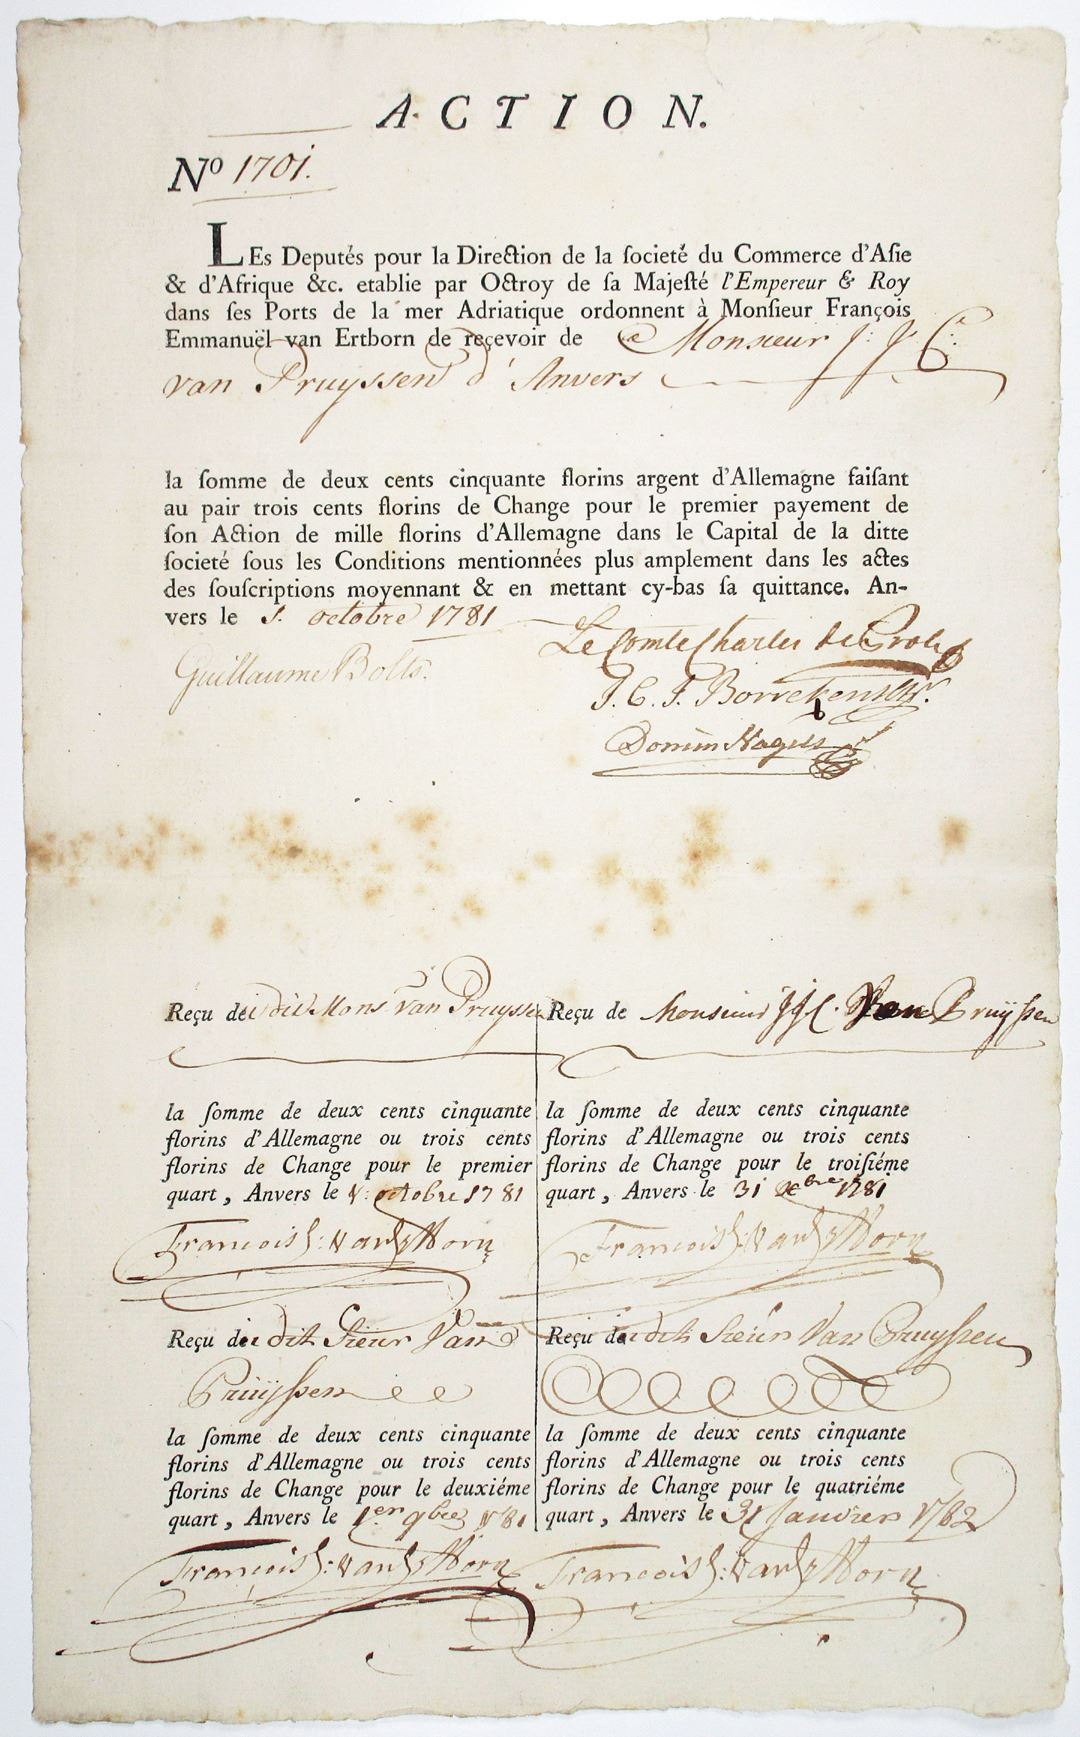 ACTION.
Nº 1701.
LEs Deputés pour la Direction de la ſocieté du Commerce d'Aſie
& d'Afrique &c. etablie par Octroy de ſa Majeſté l'Empereur & Roy
dans ſes Ports de la mer Adriatique ordonnent à Monſieur François
Emmanuël van Ertborn de reçevoir de Monsieur J: J. C.
van Pruyssen d'Anvers
la ſomme de deux cents cinquante florins argent d'Allemagne faiſant
au pair trois cents florins de Change pour le premier payement de
ſon Action de mille florins d'Allemagne dans le Capital de la ditte
ſocieté ſous les Conditions mentionnées plus amplement dans les actes
des ſouſcriptions moyennant & en mettant cy-bas ſa quittance. An-
vers le octobre 1781
Le Comte Charles de Proli
Guillaume Bolts.
J. C. J. Borrekens
Domin Nagels
Reçu de dit Mons van Pruyssen
la ſomme de deux cents cinquante
florins d'Allemagne ou trois cents
florins de Change pour le premier
quart, Anvers le octobre 1781
François
Reçu de Monsieur JJC. Van Pruÿſsen
la ſomme de deux cents cinquante
florins d'Allemagne ou trois cents
florins de Change pour le troiſiéme
quart, Anvers le 31 1781
François
Reçu de dit Sieur Van
Pruÿſsen
la ſomme de deux cents cinquante
florins d'Allemagne ou trois cents
florins de Change pour le deuxiéme
quart, Anvers le 1er 9bre 1781
François
Reçu de dit Sieur Van Pruyſsen
la ſomme de deux cents cinquante
florins d'Allemagne ou trois cents
florins de Change pour le quatriéme
quart, Anvers le 31 Janvier 1782
François